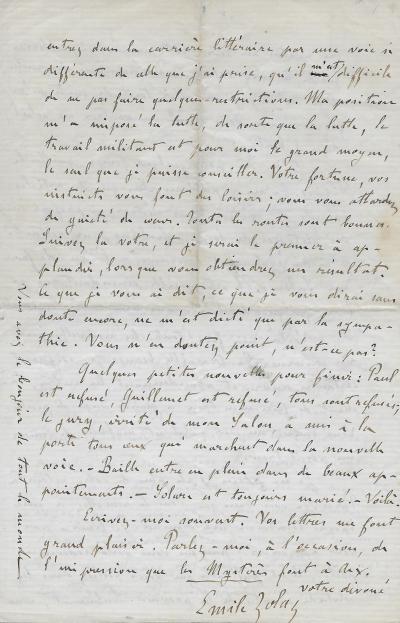 entrez dans la carrière littéraire par une voie si
différente de celle que j'ai prise, qu'il m'est difficile
de ne pas faire quelques restrictions. Ma position
m'a imposé la lutte, de sorte que la lutte, le
travail militant est pour moi le grand moyen,
le seul que je puisse conseiller. Votre fortune, vos
instincts vous font des loisirs ; vous vous attardez
de gaieté de cœur. Toutes les routes sont bonnes.
Suivez la votre, et je serai le premier à ap-
plaudir, lorsque vous obtiendrez un résultat.
Ce que je vous ai dit, ce que je vous dirai sans
doute encore, ne m'est dicté que par la sympa-
thie. Vous n'en doutez point, n'est-ce pas ?
Quelques petites nouvelles pour finir : Paul
est refusé, Guillemet est refusé, tous sont refusés ;
le jury, irrité de mon Salon a mis à la
porte tous ceux qui marchent dans la nouvelle
voie. – Baille entre en plein dans de beaux ap-
pointements. – Solari est toujours marié. – Voilà.
Ecrivez-moi souvent. Vos lettres me font
grand plaisir. Parlez-moi, à l'occasion, de
l'impression que les Mystères font à Aix.
votre dévoué
Emile Zola
Vous avez le bonjour de tout le monde